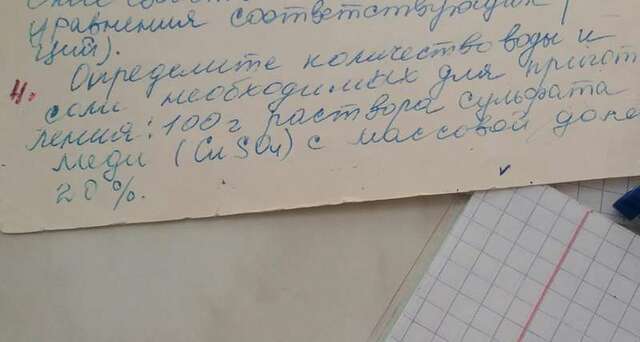 уравнения соответствующих
ций).
4. Определите количество воды и
соли необходимых для пригот
ления: 100 г раствора сульфата
меди (CuSO4) с массовой доле
20%.